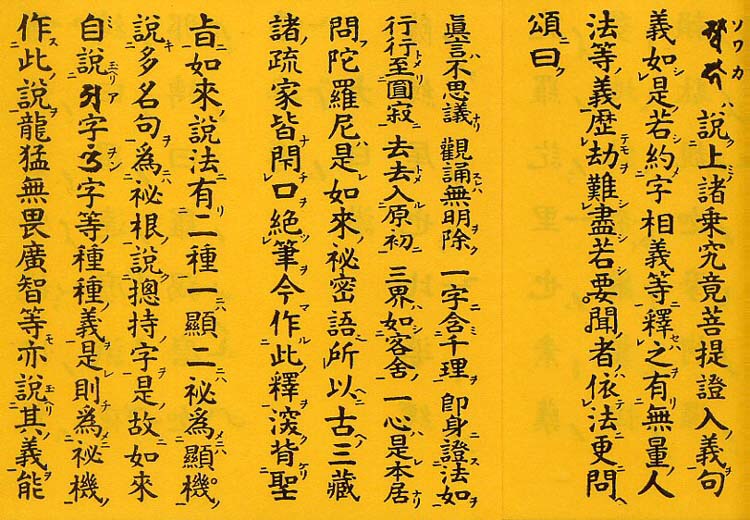 説上諸乗究竟菩提證入義句
義如是若約字相義等釋之有無量人
法等義歴劫難盡若要聞者依法更問
頌曰
眞言不思議 觀誦無明除 一字含千理 卽身證法如
行行至圓寂 去去入原初 三界如客舍 一心是本居
問陀羅尼是如來祕密語所以古三藏
諸疏家皆閇口絶筆今作此釋深背聖
旨如來説法有二種一顯二祕爲顯機
説多名句爲祕根説摠持字是故如來
自説𑖀字𑖌𑖼字等種種義是則爲祕機
作此説龍猛無畏廣智等亦説其義能